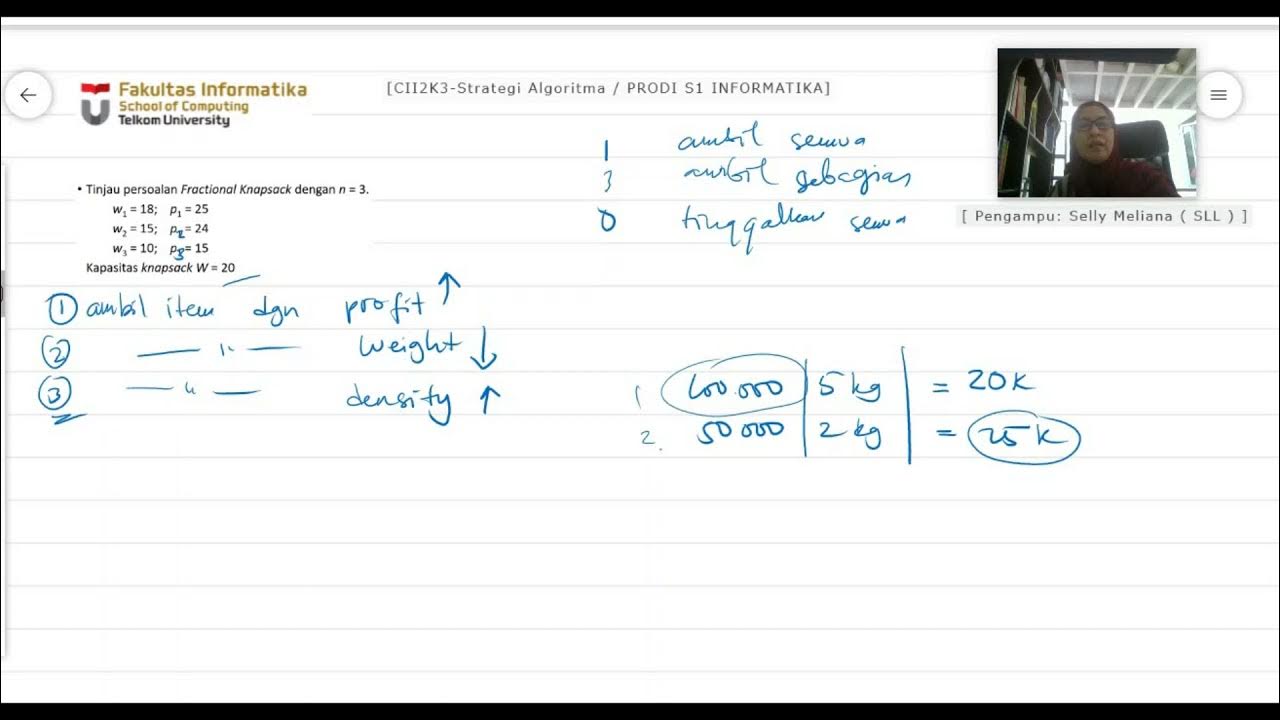 Fakultas Informatika
School of Computing
Telkom University
[CII2K3-Strategi Algoritma / PRODI S1 INFORMATIKA]
1 ambil semua
3 ambil sebagian
0 tinggalkan semua
[ Pengampu: Selly Meliana ( SLL ) ]
• Tinjau persoalan Fractional Knapsack dengan n = 3.
w1 = 18; p1 = 25
w2 = 15; p2 = 24
w3 = 10; p3 = 15
Kapasitas knapsack W = 20
① ambil item dgn profit ↑
② — 〃 — weight ↓
③ — 〃 — density ↑
1 100.000 | 5 kg | = 20K
2. 50 000 | 2 kg | = 25K